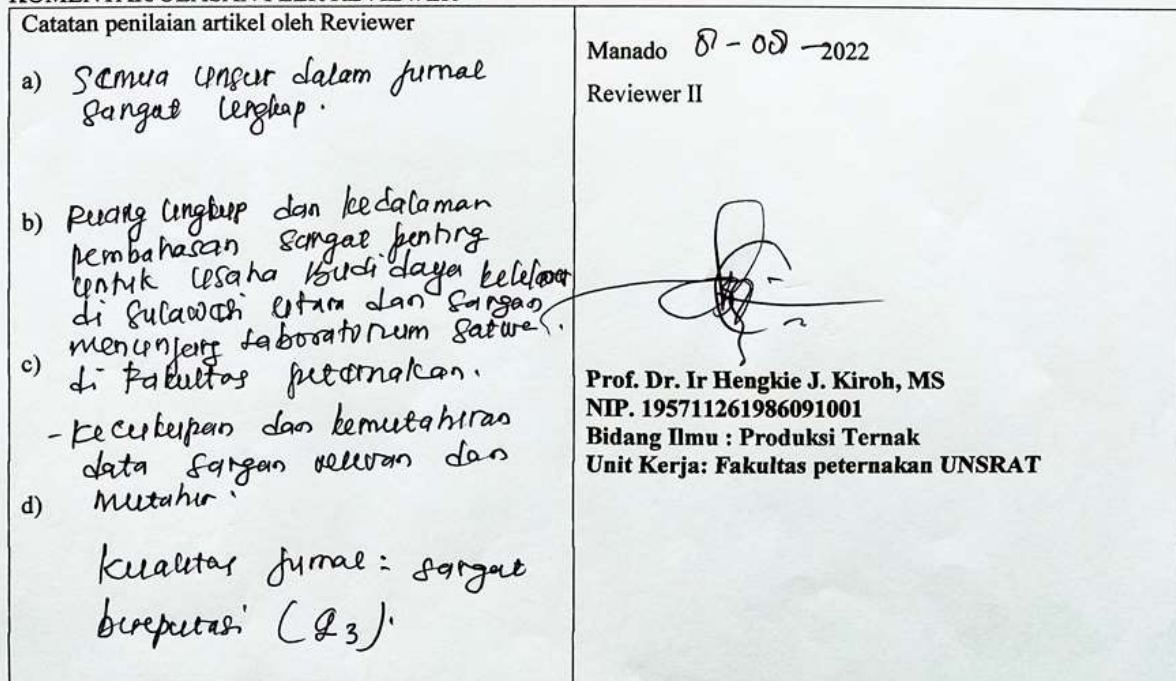 KOMENTAR ULASAN PEER REVIEWER
Catatan penilaian artikel oleh Reviewer
a) Semua unsur dalam jurnal
sangat lengkap.
b) Ruang lingkup dan kedalaman
pembahasan sangat penting
untuk usaha budi daya kelelawar
di Sulawesi Utara dan sangan
menunjang Laboratorium Satwa.
c) di Fakultas peternakan.
- Kecukupan dan kemutahiran
data sangan relevan dan
d) mutahir.
Kualitas jurnal: sangat
bereputasi (Q3).
Manado - -2022
Reviewer II
Prof. Dr. Ir Hengkie J. Kiroh, MS
NIP. 195711261986091001
Bidang Ilmu : Produksi Ternak
Unit Kerja: Fakultas peternakan UNSRAT